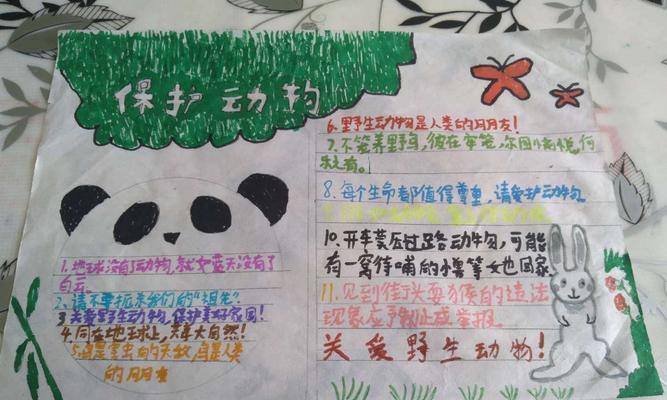 保护动物
1.地球没有了动物,就如蓝天没有了
白云。
2.请不要抓来我们的“祖先”
3关爱野生动物,保护美好家园!
4.同在地球上,共享大自然!
5.鸟是害虫的天敌,鸟是人类
的朋友
6.野生动物是人类的朋友!
7.不笼养野鸟,彼在牢笼,尔图小悦,何
8.每个生命都值得尊重,请爱护动物。
10.开车莫压过路动物,可能
有一窝待哺的小崽等她回家
11.见到街头耍猴的违法
现象应予制止或举报.
关爱野生动物!